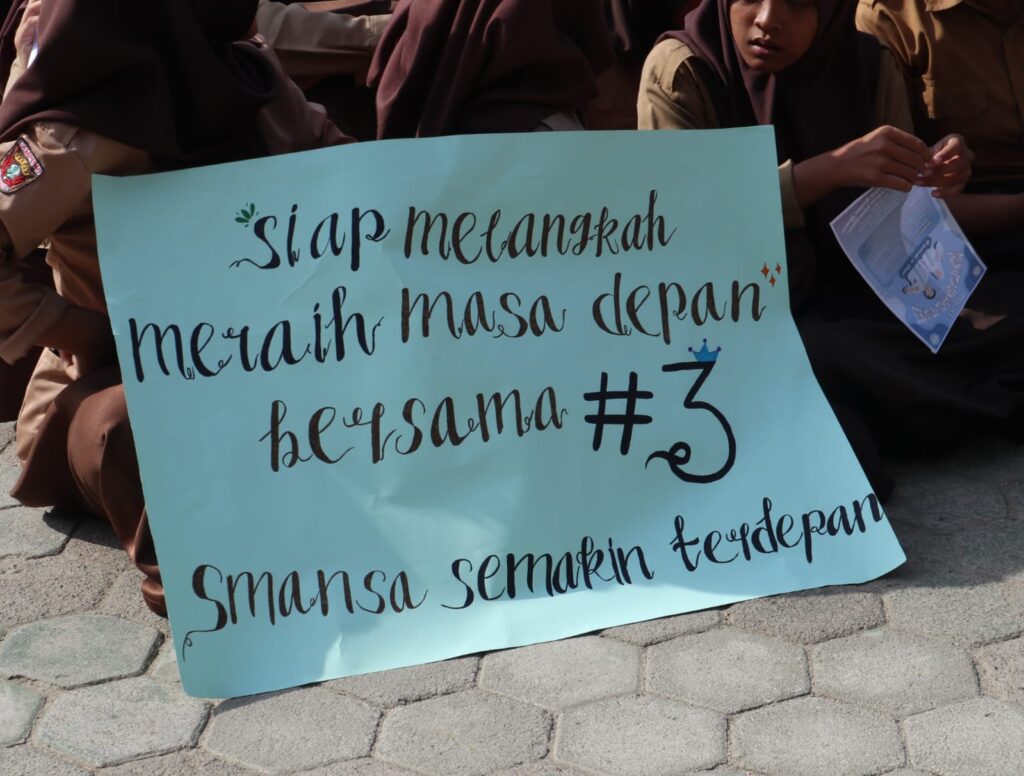 Siap melangkah
meraih masa depan
bersama #3
Smansa semakin terdepan